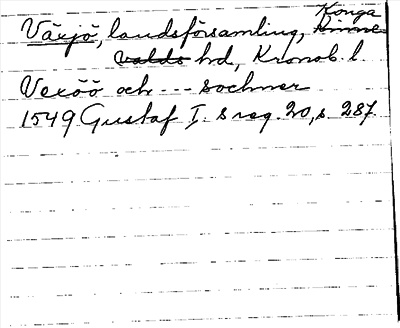 Växjö, landsförsamling, Konga
hd, Kronob. l.
Vexöö och --- sochner
1549 Gustaf I. s reg. 20, s. 287.